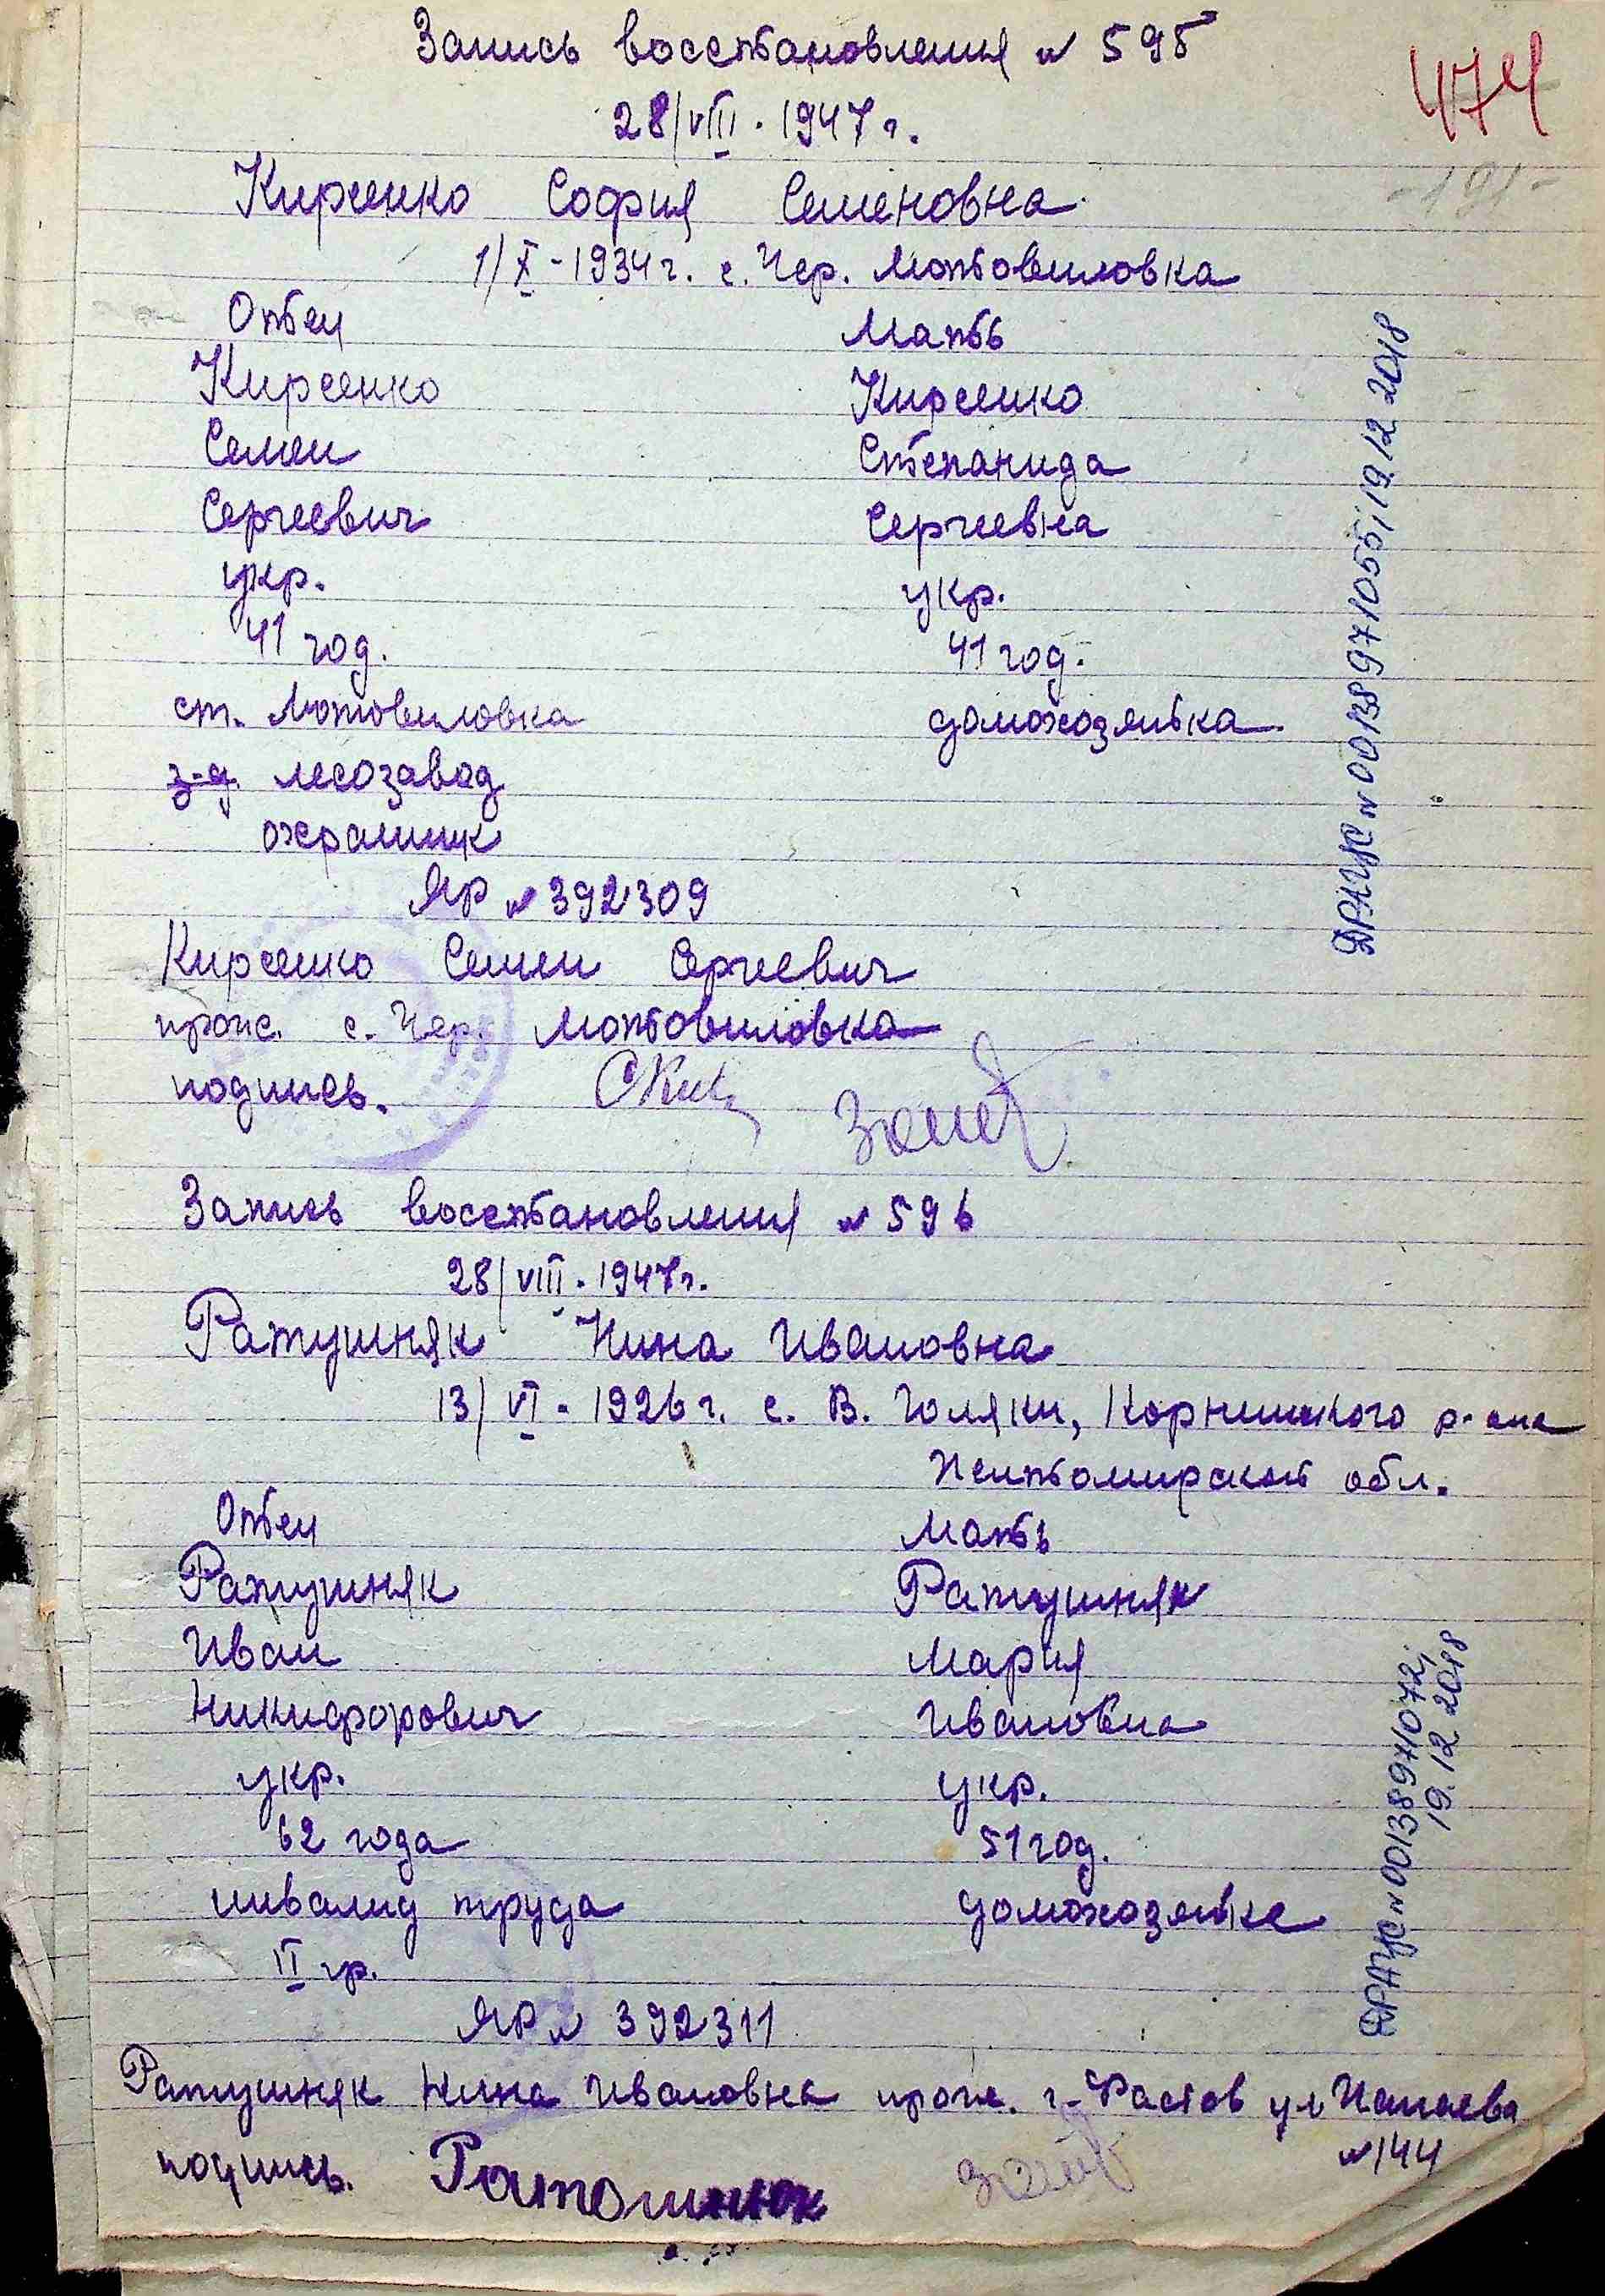 Запись восстановления № 595
474
28/VIII. 1947 г.
- 191 -
Кирсенко София Семеновна
1/X - 1934 г. с. Чер. Мотовиловка
Отец Мать
Кирсенко Кирсенко
Семен Степанида
Сергеевич Сергеевна
укр. укр.
41 год. 41 год.
ст. Мотовиловка домохозяйка
з-д. лесозавод
охранник
ЯР № 392309
Кирсенко Семен Сергеевич
прож. с. Чер. Мотовиловка
подпись.
ДРАЦС № 00138971055, 19.12 2018
Запись восстановления № 596
28/VIII. 1947 г.
Ратушняк Нина Ивановна
13/VI - 1926 г. с. В. Голяки, Корнинского р-она
Житомирской обл.
Отец Мать
Ратушняк Ратушняк
Иван Мария
Никифорович Ивановна
укр. укр.
62 года 51 год.
инвалид труда домохозяйка
II гр.
ЯР № 392311
Ратушняк Нина Ивановна прож. г. Фастов ул Чапаева
№ 144
подпись.
ДРАЦС № 00138971072,
19.12 2018